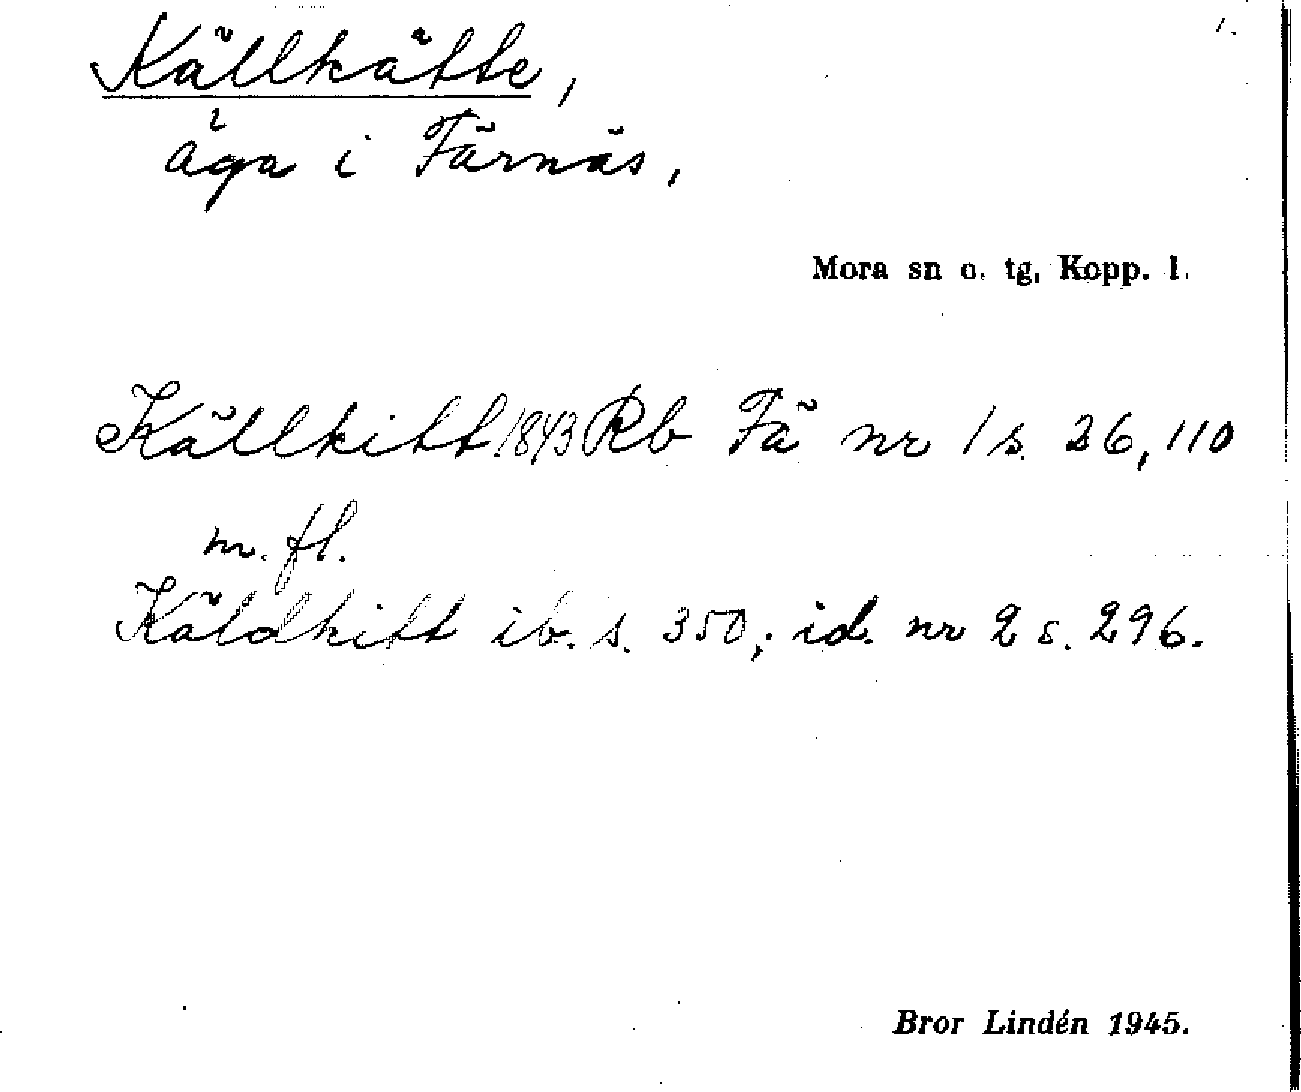 1.
Källkätte,
äga i Färnäs,
Mora sn o. tg, Kopp. l.
Källkitt 1843 Rb Fä nr 1 s. 26, 110
m. fl.
Käldkitt ib. s. 350; id. nr 2 s. 296.
Bror Lindén 1945.